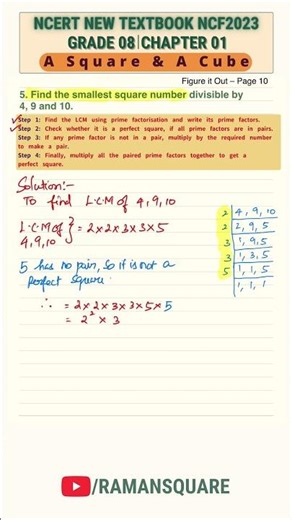 NCERT NEW TEXTBOOK NCF2023
GRADE 08|CHAPTER 01
A Square & A Cube
Figure it Out – Page 10
5. Find the smallest square number divisible by
4, 9 and 10.
Step 1: Find the LCM using prime factorisation and write its prime factors.
Step 2: Check whether it is a perfect square, if all prime factors are in pairs.
Step 3: If any prime factor is not in a pair, multiply by the required number
to make a pair.
Step 4: Finally, multiply all the paired prime factors together to get a
perfect square.
Solution:-
To find L.C.M of 4, 9, 10
L.C.M of } = 2×2×3×3×5
4,9,10
2 | 4, 9, 10
2 | 2, 9, 5
3 | 1, 9, 5
3 | 1, 3, 5
5 | 1, 1, 5
1, 1, 1
5 has no pair, So it is not a
perfect square
∴ = 2×2×3×3×5×5
= 2² × 3
/RAMANSQUARE